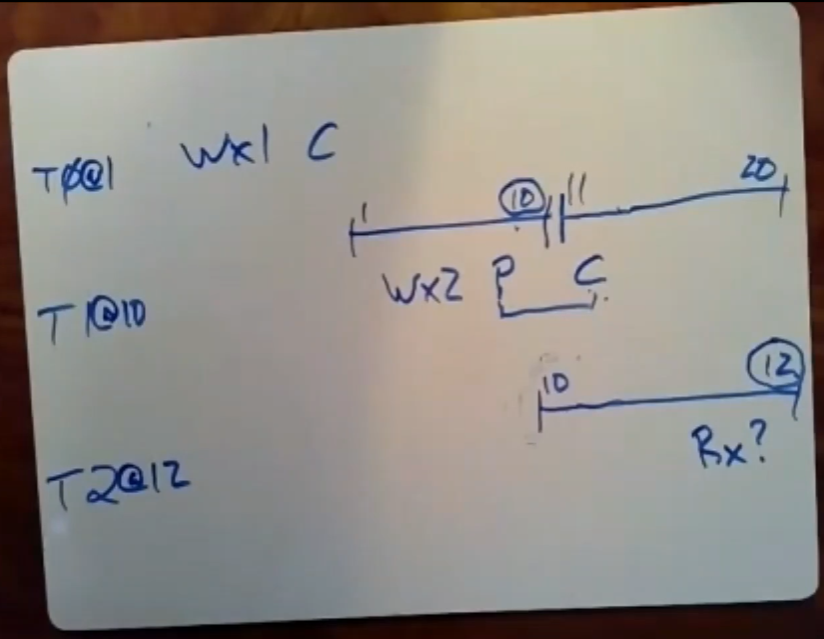 T0@1 Wx1 C
1 10 11 20
T1@10 Wx2 P C
10 12
Rx?
T2@12